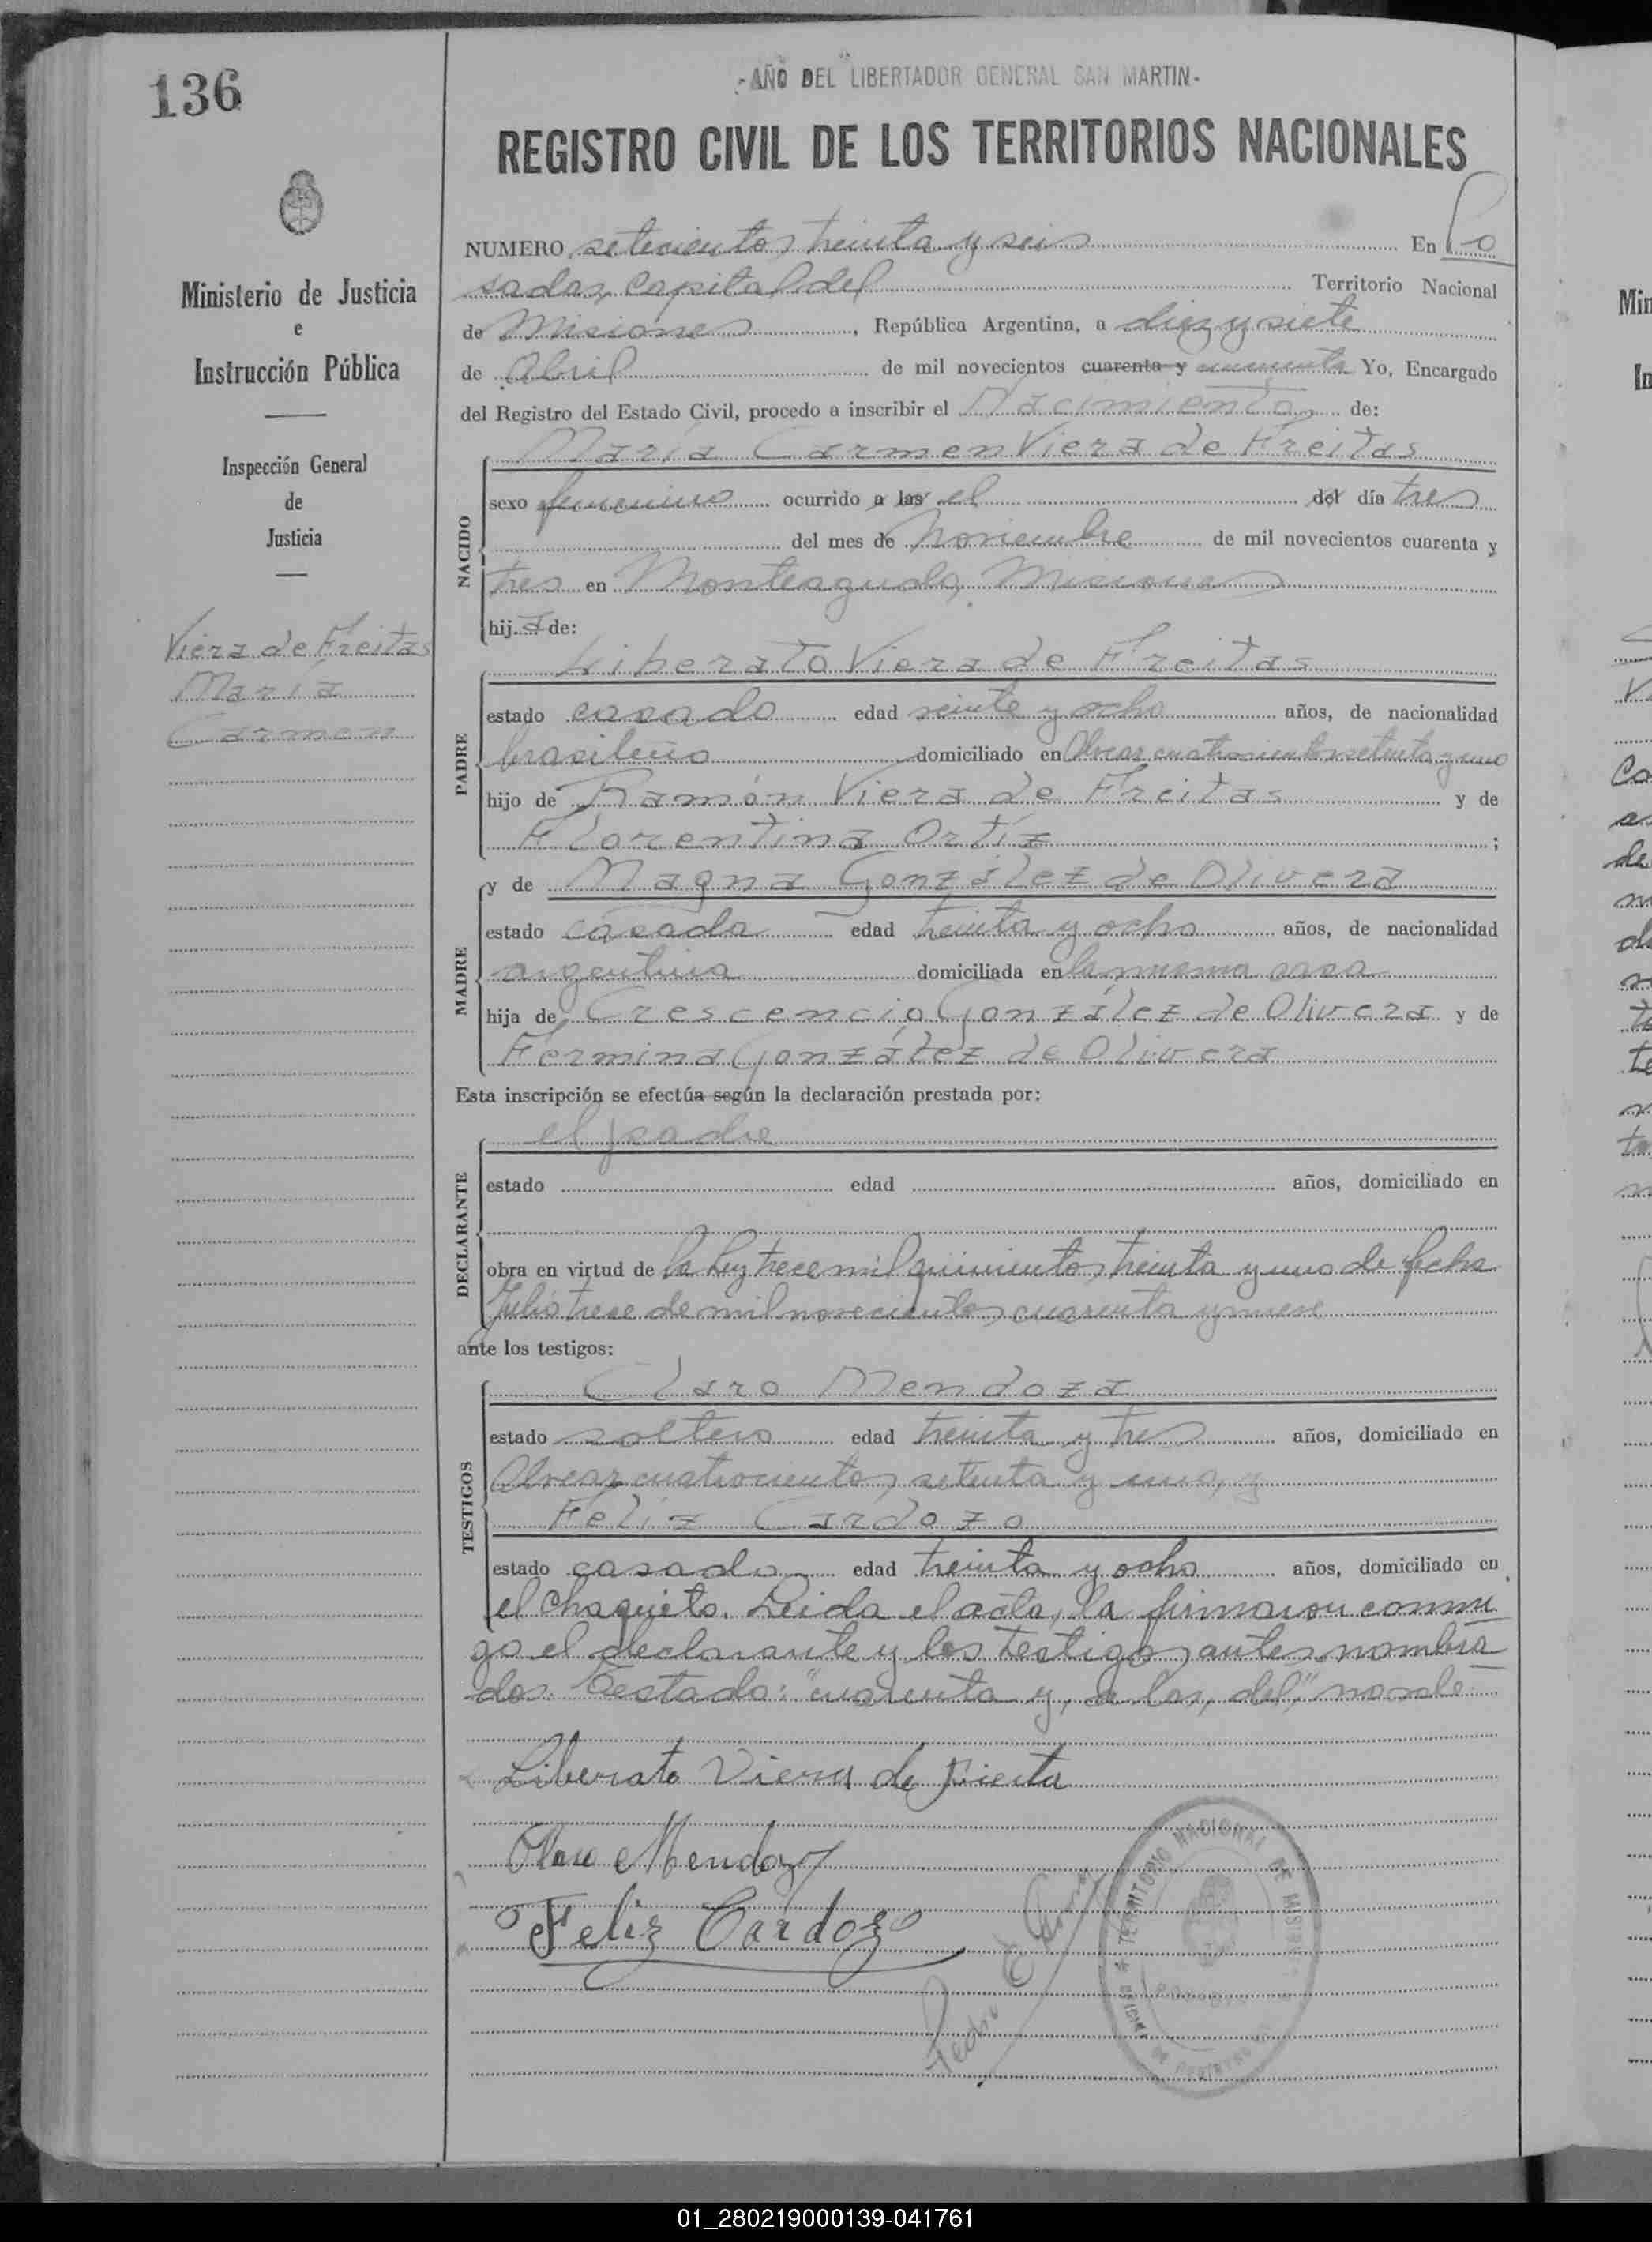 136
-AÑO DEL LIBERTADOR GENERAL SAN MARTIN-
REGISTRO CIVIL DE LOS TERRITORIOS NACIONALES
Ministerio de Justicia
e
Instrucción Pública
Inspección General
de
Justicia
Viera de Freitas
María
Carmen
NUMERO setecientos treinta y seis En Po
sadas, Capital del Territorio Nacional
de Misiones, República Argentina, a diez y siete
de Abril de mil novecientos cuarenta y cincuenta Yo, Encargado
del Registro del Estado Civil, procedo a inscribir el Nacimiento de:
NACIDO
María Carmen Viera de Freitas
sexo femenino ocurrido a las el del día tres
del mes de Noviembre de mil novecientos cuarenta y
tres en Monteagudo, Misiones
hij a de:
PADRE
Liberato Viera de Freitas
estado casado edad veinte y ocho años, de nacionalidad
brasileño domiciliado en Alvear cuatrocientos setenta y uno
hijo de Ramón Viera de Freitas y de
Florentina Ortíz ;
MADRE
y de Magna González de Olivera
estado casada edad treinta y ocho años, de nacionalidad
argentina domiciliada en la misma casa
hija de Crescencio González de Olivera y de
Fermina González de Olivera
Esta inscripción se efectúa según la declaración prestada por:
DECLARANTE
el padre
estado edad años, domiciliado en
obra en virtud de la Ley trece mil quinientos treinta y uno de fecha
Julio trece de mil novecientos cuarenta y nueve
ante los testigos:
TESTIGOS
Claro Mendoza
estado soltero edad treinta y tres años, domiciliado en
Alvear cuatrocientos setenta y uno, y
Feliz Cardozo
estado casado edad treinta y ocho años, domiciliado en
el Chaquito. Leida el acta, la firmaron conmi
go el declarante y los testigos antes nombra
dos. Testado: "cuarenta y, a las, del," no vale.
Liberato Viera de Frieta
Claro Mendoza
Feliz Cardozo
TERRITORIO NACIONAL DE MISIONES
POSADAS
01_280219000139-041761